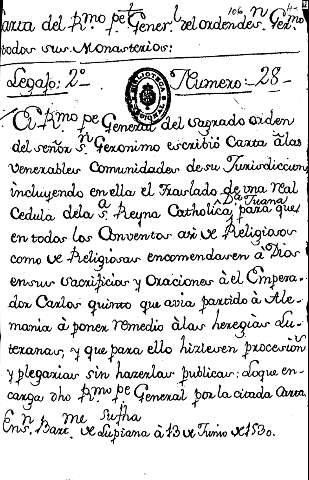 Carta del Rmo pe Generl del orden de Sn Germo
todos sus Monasterios:
Legajo: 2º Numero: 28
El Rmo pe General del sagrado orden
del señor Sn Geronimo escribió Carta â las
venerables Comunidades de su Jurisdiccion,
incluyendo en ella el Traslado de una real
Cedula de la Sa Reyna Catholica Da Juana para que
en todos los Conventos asi de Religiosos
como de Religiosas encomendasen à Dios
en sus sacrificios y Oraciones à el Empera-
dor Carlos quinto que avia partido à Ale-
mania à poner remedio à las heregias Lu-
teranas; y que para ello hiziesen procesiones
y plegarias sin hazerlas publicas: Lo que en-
carga dho Rmo pe General por la citada Carta.
su fha
En Sn Barme de Lupiana à 13 de Junio de 1530.